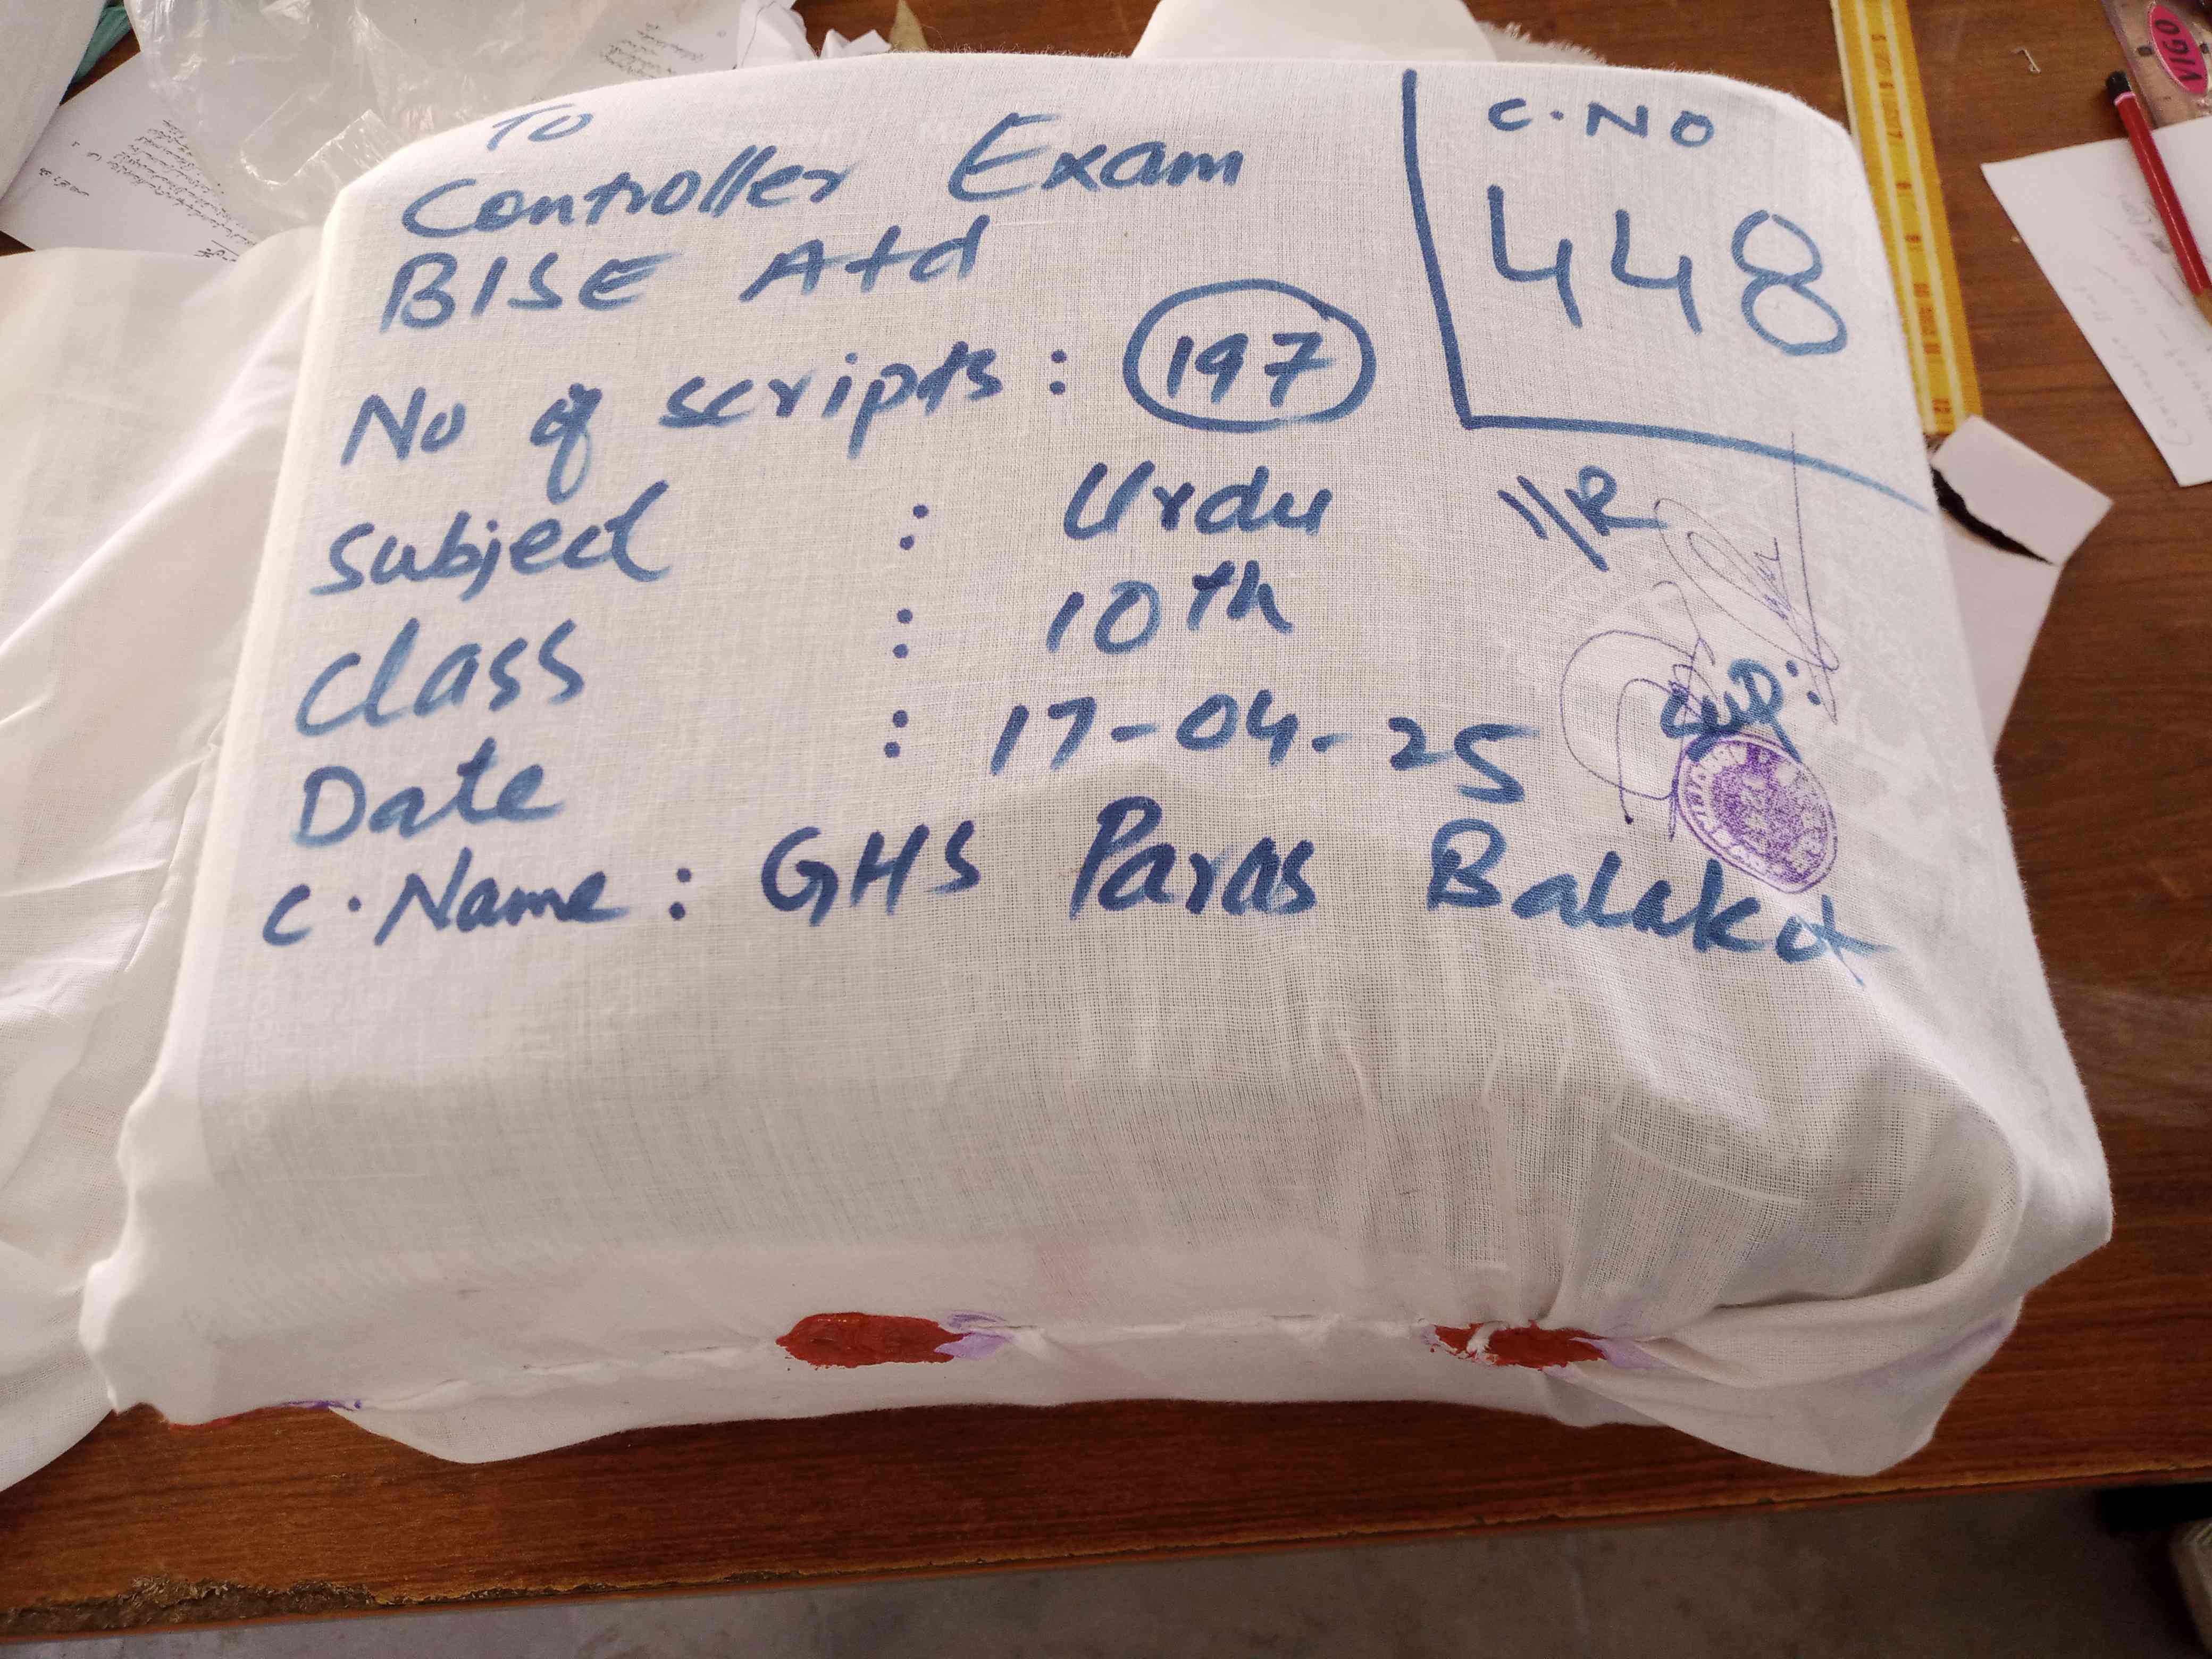 To
Controller Exam
BISE Atd
C.NO
448
No of scripts : 197
Subject : Urdu 11/R
Class : 10th
Date : 17-04-25
Sup:
C. Name : GHS Paras Balakot
VIGO